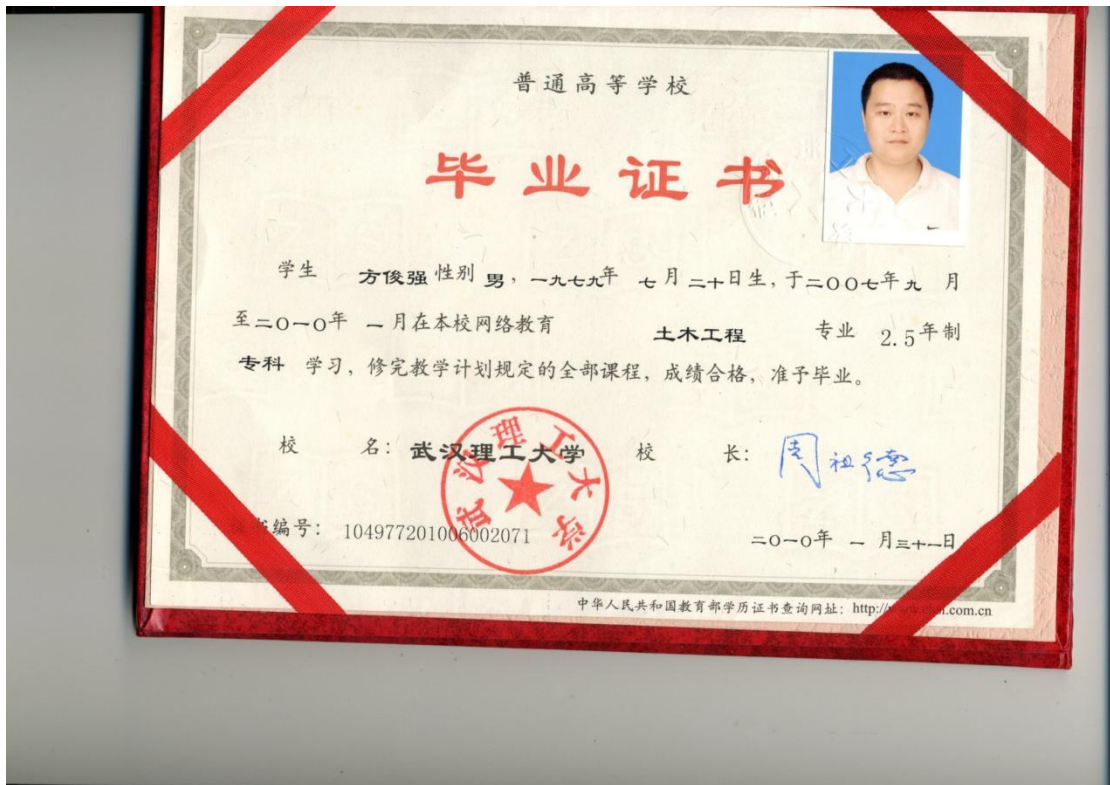 普通高等学校
毕业证书
学生 方俊强 性别 男，一九七九年 七月二十日生，于二〇〇七年九月
至二〇一〇年 一月在本校网络教育 土木工程 专业 2.5年制
专科 学习，修完教学计划规定的全部课程，成绩合格，准予毕业。
校 名：武汉理工大学 校 长：周祖德
武汉理工大学
编号：104977201006002071 二〇一〇年 一 月三十一日
中华人民共和国教育部学历证书查询网址：http:// .com.cn